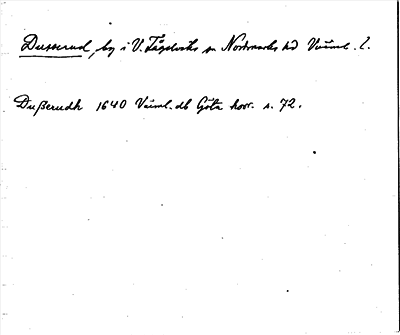 Dusserud, by i V. Fågelviks sn Nordmarks hd Värml. l.
Dußerudh 1640 Värml. db Göta hovr. s. 72.